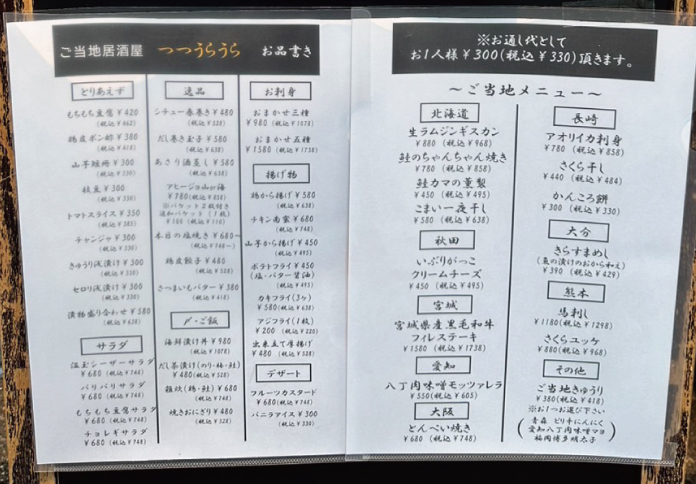 ご当地居酒屋 つつうらうら お品書き
とりあえず
もちもち豆腐¥420
(税込¥462)
鶏皮ポン酢¥380
(税込¥418)
山芋短冊¥300
(税込¥330)
枝豆¥300
(税込¥330)
トマトスライス¥350
(税込¥385)
チャンジャ¥300
(税込¥330)
きゅうり浅漬け¥300
(税込¥330)
セロリ浅漬け¥300
(税込¥330)
漬物盛り合わせ¥580
(税込¥638)
サラダ
温玉シーザーサラダ
¥680(税込¥748)
バリバリサラダ
¥680(税込¥748)
もちもち豆腐サラダ
¥680(税込¥748)
チョレギサラダ
¥680(税込¥748)
逸品
シチュー春巻き¥480
(税込¥528)
だし巻き玉子¥580
(税込¥638)
あさり酒蒸し¥580
(税込¥638)
アヒージョ山or海
¥780(税込¥858)
※バケット2枚付き
追加バケット(1枚)
¥100(税込¥110)
本日の塩焼き¥680~
(税込¥748~)
鶏皮餃子¥480
(税込¥528)
さつまいもバター¥380
(税込¥418)
〆・ご飯
海鮮漬け丼¥980
(税込¥1078)
だし茶漬け(のり・梅・鮭)
¥480(税込¥528)
雑炊(鶏・鮭)¥680
(税込¥748)
焼きおにぎり¥480
(税込¥528)
お刺身
おまかせ三種
¥980(税込¥1078)
おまかせ五種
¥1580(税込¥1738)
揚げ物
鶏から揚げ¥580
(税込¥638)
チキン南蛮¥680
(税込¥748)
山芋から揚げ¥450
(税込¥495)
ポテトフライ¥450
(塩・バター醤油)
(税込¥495)
カキフライ(3ヶ)
¥580(税込¥638)
アジフライ(1枚)
¥200(税込¥220)
出来立て厚揚げ
¥480(税込¥528)
デザート
フルーツカスタード
¥680(税込¥748)
バニラアイス¥300
(税込¥330)
※お通し代として
お1人様¥300(税込¥330)頂きます。
～ご当地メニュー～
北海道
生ラムジンギスカン
¥880(税込¥968)
鮭のちゃんちゃん焼き
¥780(税込¥858)
鮭カマの薫製
¥450(税込¥495)
こまい一夜干し
¥580(税込¥638)
秋田
いぶりがっこ
クリームチーズ
¥450(税込¥495)
宮城
宮城県産黒毛和牛
フィレステーキ
¥1580(税込¥1738)
愛知
八丁肉味噌モッツァレラ
¥550(税込¥605)
大阪
とんぺい焼き
¥680(税込¥748)
長崎
アオリイカ刺身
¥780(税込¥858)
さくら干し
¥440(税込¥484)
かんころ餅
¥300(税込¥330)
大分
きらすまめし
(魚の漬けのおから和え)
¥390(税込¥429)
熊本
馬刺し
¥1180(税込¥1298)
さくらユッケ
¥880(税込¥968)
その他
ご当地きゅうり
¥380(税込¥418)
※お1つお選び下さい
青森 ピリ辛にんにく
愛知八丁肉味噌マヨ
福岡博多明太子